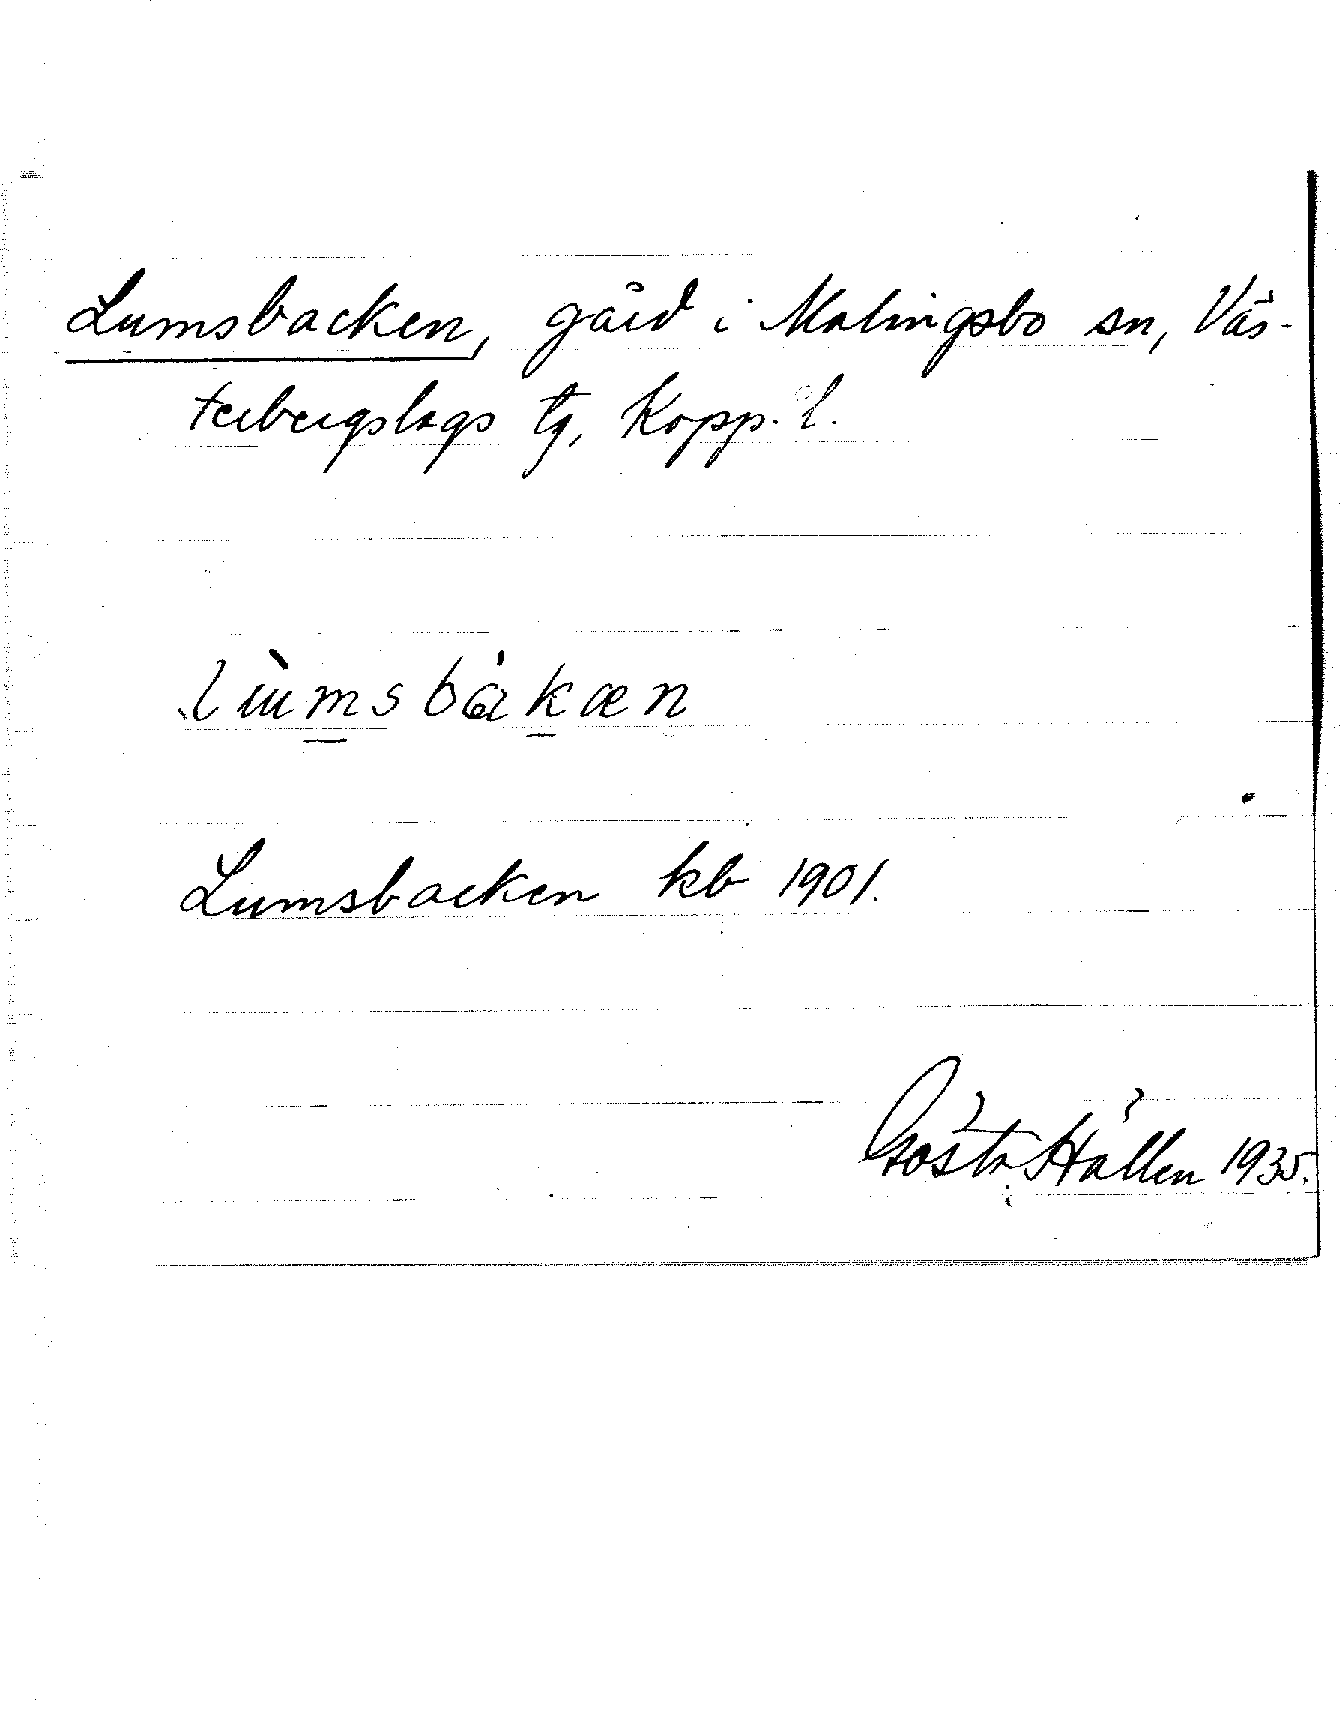 Lumsbacken, gård i Malingsbo sn, Väs-
terbergslags tg, Kopp. l.
lùmsbàkæn
Lumsbacken kb 1901.
Gösta Hällen 1935.